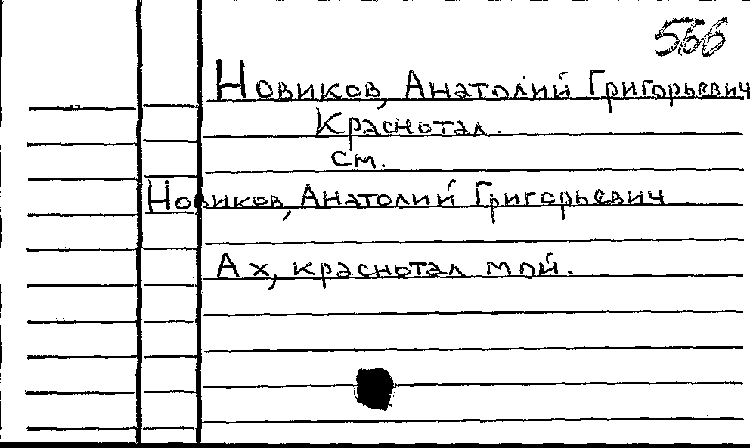 566
Новиков, Анатолий Григорьевич
Краснотал.
см.
Новиков, Анатолий Григорьевич
Ах, краснотал мой.